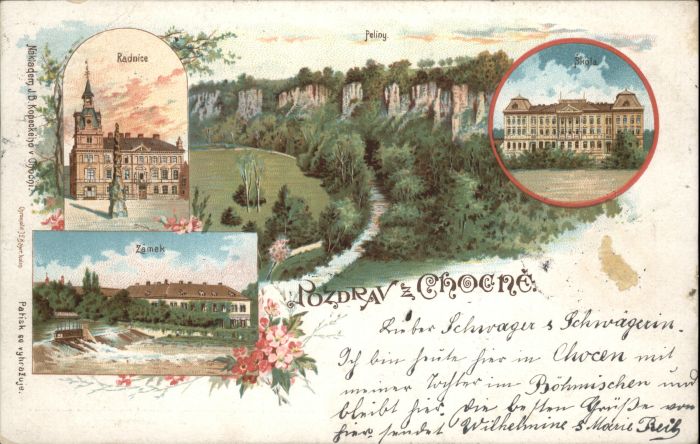 Peliny.
Radnice
Škola
Nákladem J.B. Kopeckého v Chocni.
Zámek
Patisk se vyhražuje.
POZDRAV z CHOCNĚ.
Lieber Schwager & Schwägerin.
Ich bin heute hier in Chocen mit
meiner Tochter im Böhmischen und
bleibt hier. die besten Grüße von
hier sendet Wilhelmine & Marie